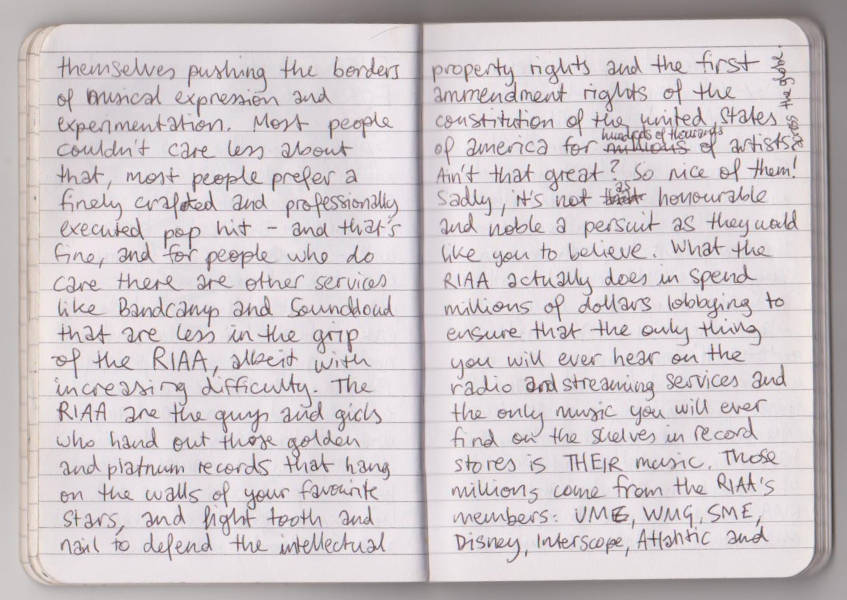 themselves pushing the borders
of musical expression and
experimentation. Most people
couldn't care less about
that, most people prefer a
finely crafted and professionally
executed pop hit – and that's
fine, and for people who do
care there are other services
like Bandcamp and Soundcloud
that are less in the grip
of the RIAA, albeit with
increasing difficulty. The
RIAA are the guys and girls
who hand out those golden
and platinum records that hang
on the walls of your favourite
stars, and fight tooth and
nail to defend the intellectual
property rights and the first
ammendment rights of the
constitution of the united states
hundreds of thousands
of america for millions of artists
Ain't that great? So nice of them!
as
Sadly, it's not that honourable
and noble a persuit as they would
like you to believe. What the
RIAA actually does in spend
millions of dollars lobbying to
ensure that the only thing
you will ever hear on the
radio and streaming services and
the only music you will ever
find on the shelves in record
stores is THEIR music. Those
millions come from the RIAA's
members: UMG, WMG, SME,
Disney, Interscope, Atlantic and